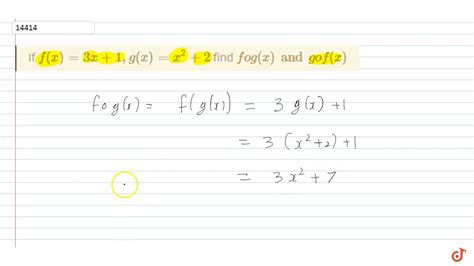 14414
If f(x) = 3x + 1, g(x) = x² + 2 find fog(x) and gof(x)
fog(x) = f(g(x)) = 3 g(x) + 1
= 3 (x²+2) + 1
= 3x² + 7